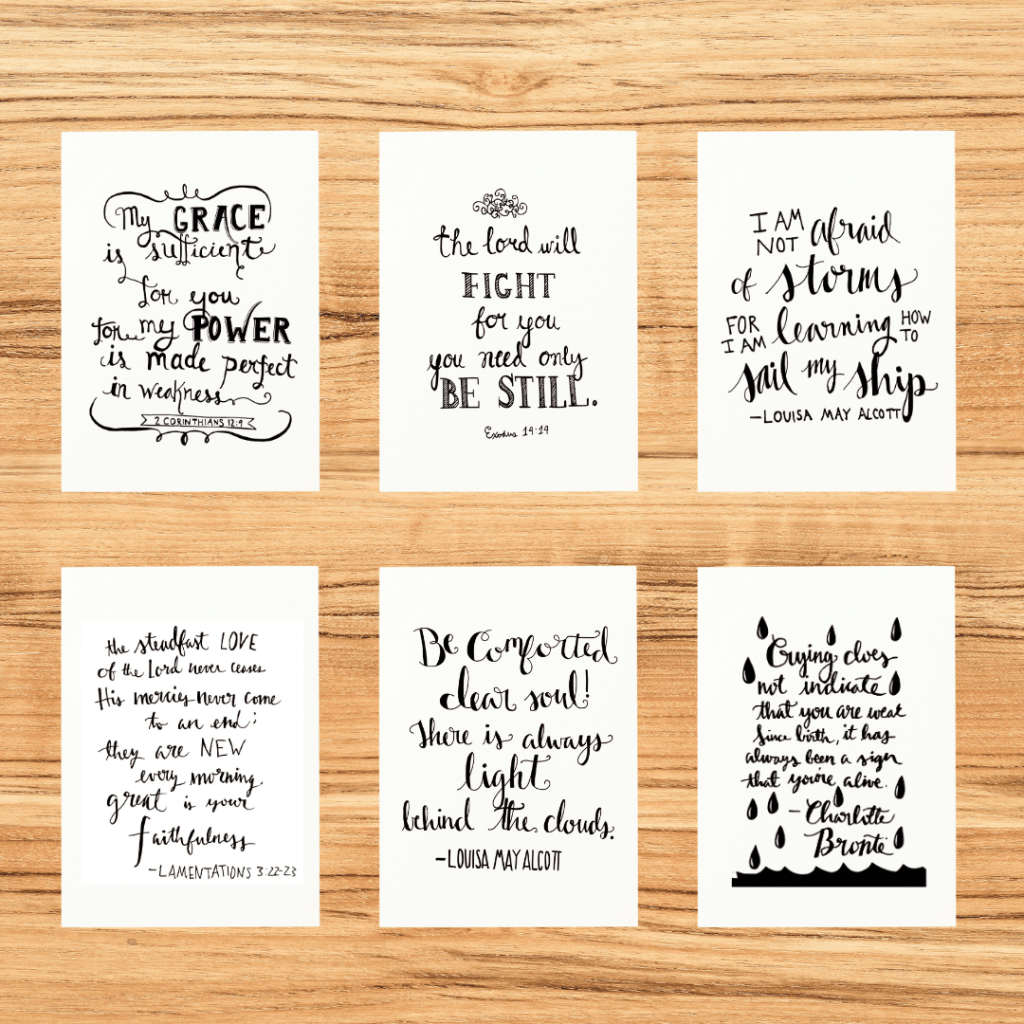 My GRACE
is sufficient
for you
for my POWER
is made perfect
in weakness
2 CORINTHIANS 12:9
the lord will
FIGHT
for you
you need only
BE STILL.
Exodus 14:14
I AM NOT afraid
of storms
FOR I AM learning HOW TO
sail my ship
—LOUISA MAY ALCOTT
the steadfast LOVE
of the Lord never ceases
His mercies never come
to an end;
they are NEW
every morning
great is your
faithfulness
—LAMENTATIONS 3:22-23
Be Comforted
dear soul!
There is always
light
behind the clouds.
—LOUISA MAY ALCOTT
Crying does
not indicate
that you are weak
Since birth, it has
always been a sign
that you're alive.
— Charlotte
Brontë